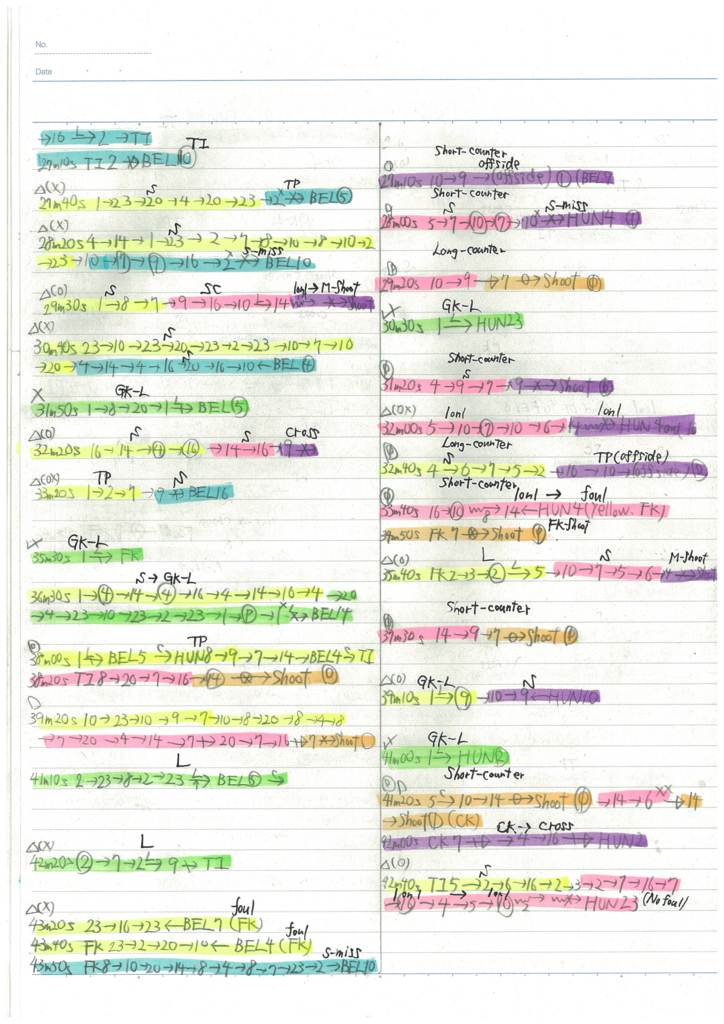 No.
Date
→16 →2 →TI
TI
27m10s TI 2 BEL⑩
△(X) S TP
27m40s 1→23→20→4→20→23→2 BEL⑤
△(X) S
28m20s 4→14→1→23→2→7→8→10→8→10→2
S-miss
→23→10→⑦→①→16→2 BEL10
△(O) S SC 1on1→M-Shoot
29m30s 1→8→7→9→16→10→14
△(X) S
30m40s 23→10→23→20→23→2→23→10→7→10
→20→4→14→4→16→20→16→10←BEL④
X GK-L
31m50s 1→8→20→1→BEL⑤
△(O) S S Cross
32m20s 16→14→④→⑯→14→16→9
△(OX) TP S
33m20s 1→2→7→9 BEL16
X GK-L
35m30s 1→FK
S→GK-L
36m30s 1→④→14→④→16→4→14→10→4→20
→4→23→10→23→2→23→1→①→1 BEL14
TP
38m00s 1→BEL5→HUN8→9→7→14→BEL4→TI
38m20s TI8→20→7→16→⑭→Shoot
39m20s 10→23→10→9→7→10→8→20→8→4→8
→7→20→4→14→7→20→7→16→7→Shoot
L
41m10s 2→23→8→2→23→BEL⑤→S
△(X) L
42m20s ②→7→2→9→TI
△(X) foul
43m20s 23→16→23←BEL7 (FK)
foul
43m40s FK 23→2→20→10←BEL4 (FK)
S-miss
43m50s FK8→10→20→14→8→4→8→7→23→2→BEL10
Short-counter
offside
27m10s 10→9→(offside) ① (BEL9
Short-counter
S S-miss
28m00s 5→7→⑩→⑦→10 HUN4
Long-counter
29m20s 10→9→7→Shoot
X GK-L
30m30s 1→HUN23
Short-counter
S
31m20s 4→9→7→9→Shoot
△(OX) 1on1 1on1
32m00s 5→10→⑦→10→6→14 HUN4and16
Long-counter
S TP(offside)
32m40s 4→6→7→5→2→10→10→(offside)
Short-counter
1on1 → foul
33m40s 16→⑩→14←HUN4(Yellow. FK)
FK-Shoot
34m50s FK 7→Shoot
△(O) L S M-Shoot
35m40s FK2→3→②→5→10→7→5→6→
Short-counter
37m30s 14→9→7→Shoot
△(O) GK-L S
39m10s 1→⑨→10→9←HUN10
X GK-L
41m00s 1→HUN②
Short-counter
41m20s 5→10→14→Shoot →14→6→14
→Shoot (CK)
CK→cross
42m00s CK7→4→16→HUN2
△(O) S
42m40s TI5→2→6→16→2→3→2→7→16→7
1on1 → 1on1
→⑩→4→5→⑩→HUN23 (No foul)